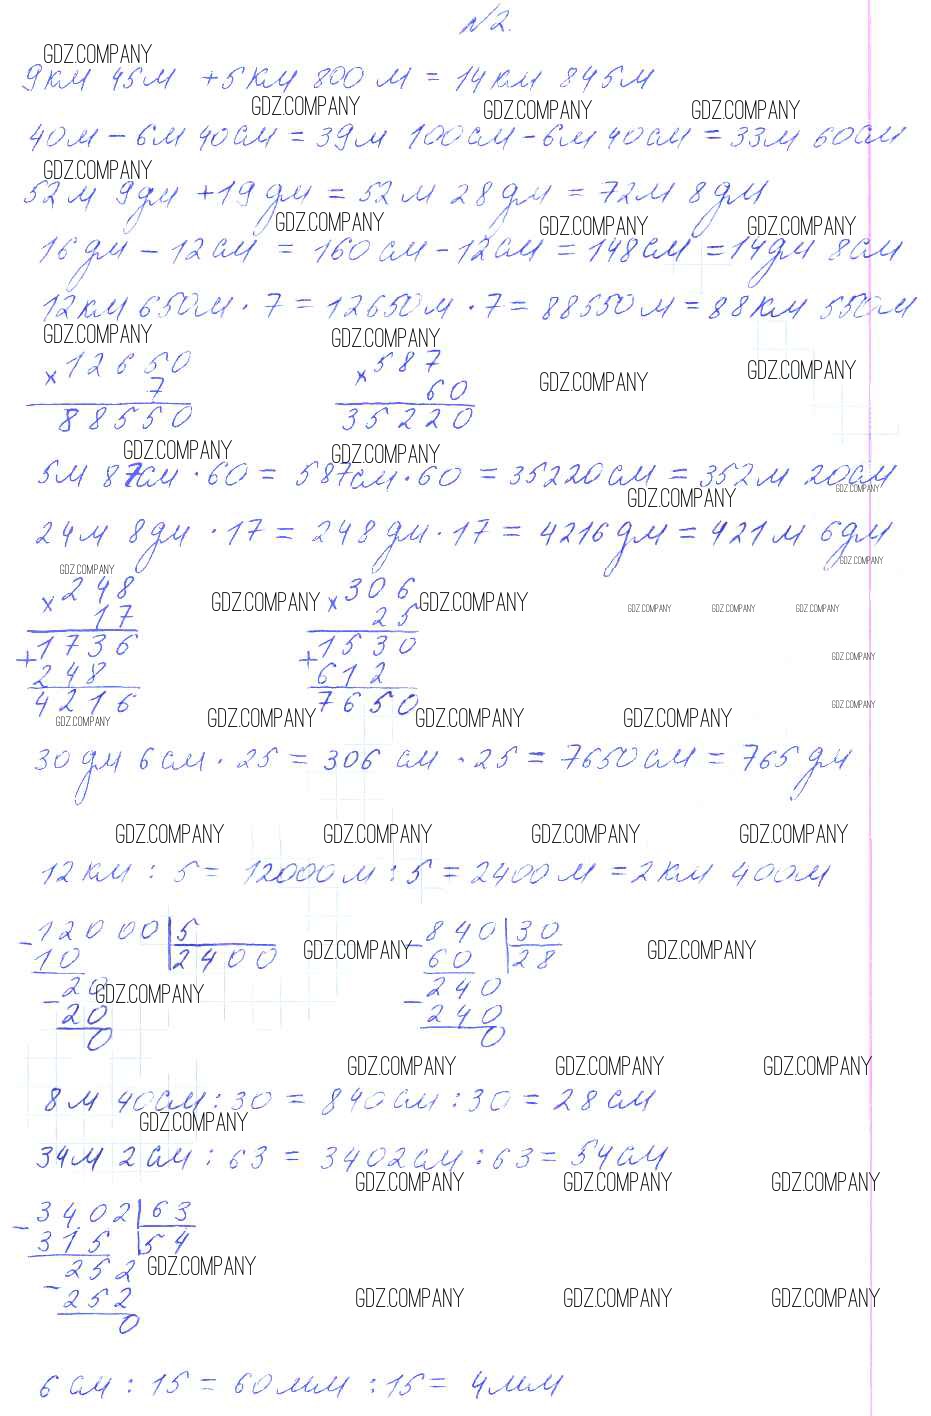 N2.
GDZ.COMPANY
9км 45м + 5км 800м = 14км 845м
GDZ.COMPANY GDZ.COMPANY GDZ.COMPANY
40м - 6м 40см = 39м 100см - 6м 40см = 33м 60см
GDZ.COMPANY
52м 9дм + 19дм = 52м 28дм = 72м 8дм
GDZ.COMPANY GDZ.COMPANY GDZ.COMPANY
16дм - 12см = 160см - 12см = 148см = 14дм 8см
12км 650м · 7 = 12650м · 7 = 88550м = 88км 550м
GDZ.COMPANY GDZ.COMPANY
× 12650 × 587
GDZ.COMPANY GDZ.COMPANY
7 60
88550 35220
GDZ.COMPANY GDZ.COMPANY
5м 87см · 60 = 587см · 60 = 35220см = 352м 20см
GDZ.COMPANY GDZ.COMPANY
24м 8дм · 17 = 248дм · 17 = 4216дм = 421м 6дм
GDZ.COMPANY GDZ.COMPANY
× 248 × 306
GDZ.COMPANY GDZ.COMPANY GDZ.COMPANY GDZ.COMPANY GDZ.COMPANY
17 25
+ 1736 + 1530
GDZ.COMPANY
248 612
4216 7650
GDZ.COMPANY
GDZ.COMPANY GDZ.COMPANY GDZ.COMPANY GDZ.COMPANY
30дм 6см · 25 = 306см · 25 = 7650см = 765дм
GDZ.COMPANY GDZ.COMPANY GDZ.COMPANY GDZ.COMPANY
12км : 5 = 12000м : 5 = 2400м = 2км 400м
- 12000 5 - 840 30
10 2400 60 28
GDZ.COMPANY GDZ.COMPANY
- 20 - 240
GDZ.COMPANY
20 240
0 0
GDZ.COMPANY GDZ.COMPANY GDZ.COMPANY
8м 40см : 30 = 840см : 30 = 28см
GDZ.COMPANY
34м 2см : 63 = 3402см : 63 = 54см
GDZ.COMPANY GDZ.COMPANY GDZ.COMPANY
- 3402 63
315 54
- 252
GDZ.COMPANY
252
GDZ.COMPANY GDZ.COMPANY GDZ.COMPANY
0
6см : 15 = 60мм : 15 = 4мм